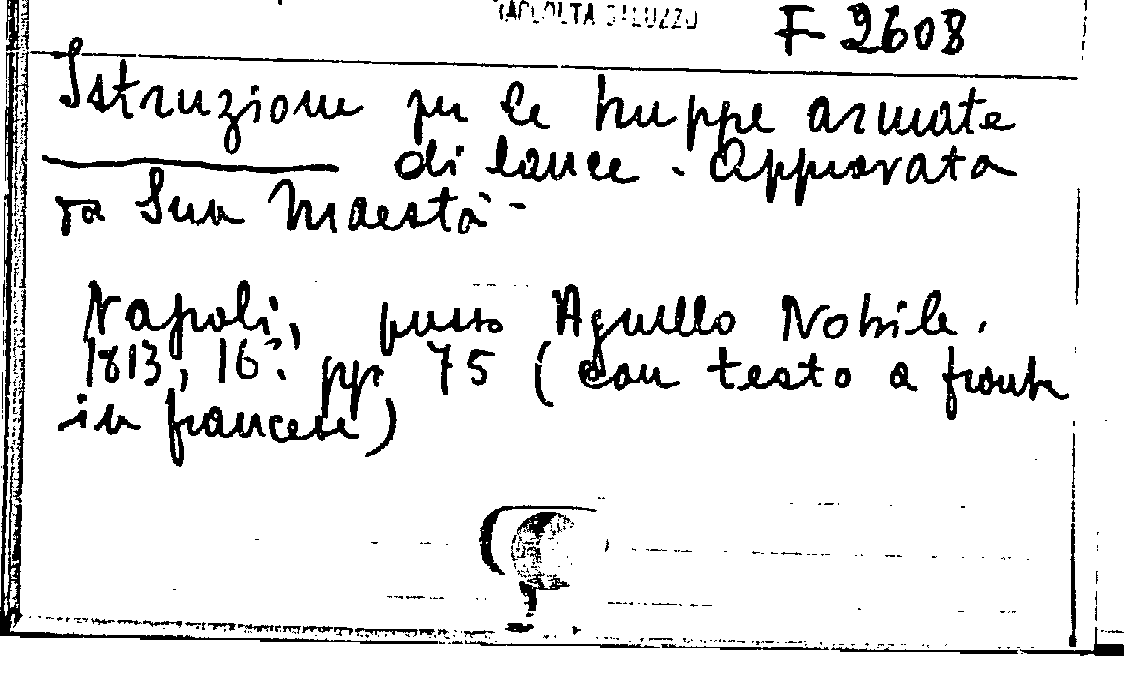 RACCOLTA SALUZZO
F 2608
Istruzione per le truppe armate
di lance. Approvata
da Sua Maestà -
Napoli, presso Agnello Nobile.
1813, 16º pp. 75 (con testo a fronte
in francese)